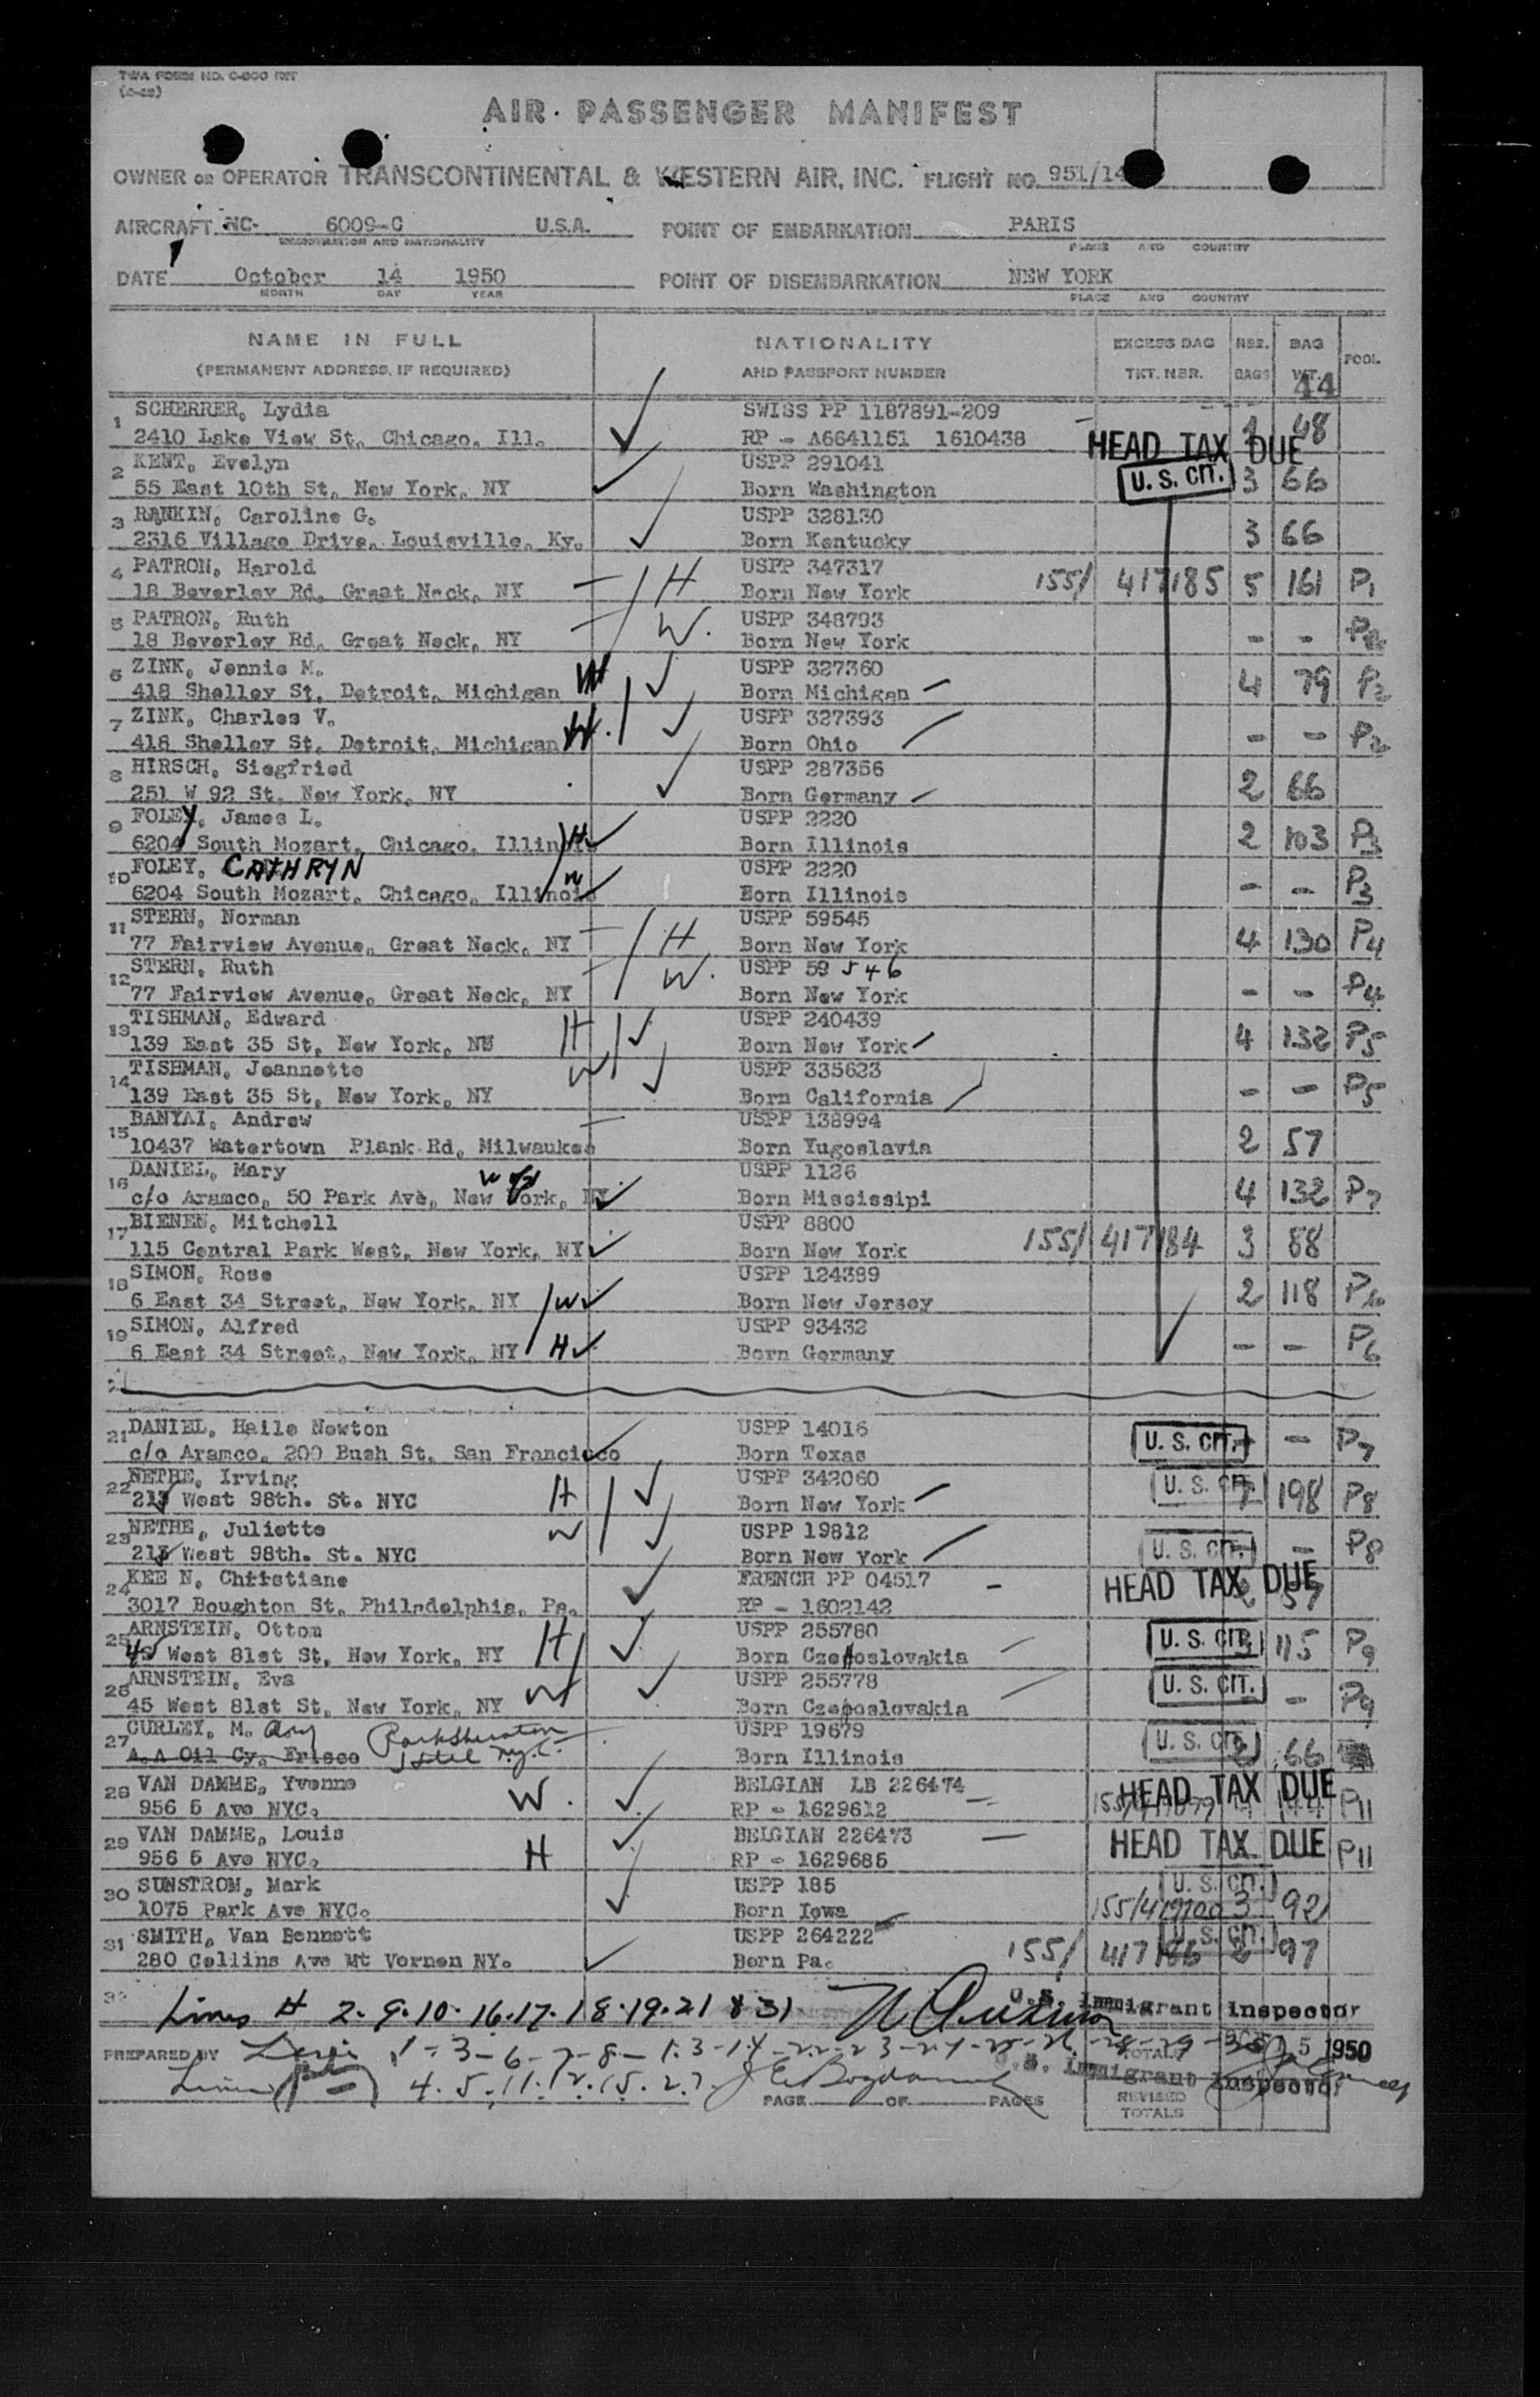 TWA FORM NO.
AIR PASSENGER MANIFEST
OWNER OR OPERATOR TRANSCONTINENTAL & WESTERN AIR, INC. FLIGHT NO. 951/14
AIRCRAFT NC- 6009-C U.S.A. POINT OF EMBARKATION PARIS
REGISTRATION AND NATIONALITY PLACE AND COUNTRY
DATE October 14 1950 POINT OF DISEMBARKATION NEW YORK
MONTH DAY YEAR PLACE AND COUNTRY
NAME IN FULL NATIONALITY EXCESS BAG NBR. BAG POOL
(PERMANENT ADDRESS, IF REQUIRED) AND PASSPORT NUMBER TKT. NBR. BAGS WT.
44
1 SCHERRER, Lydia SWISS PP 1187891-209
2410 Lake View St, Chicago, Ill. RP - A6641151 1610438 HEAD TAX DUE 48
2 KENT, Evelyn USPP 291041
55 East 10th St, New York, NY Born Washington U. S. CIT. 3 66
3 RANKIN, Caroline G. USPP 328130
2316 Village Drive, Louisville, Ky. Born Kentucky 3 66
4 PATRON, Harold USPP 347317
18 Beverley Rd, Great Neck, NY H Born New York 155/ 417185 5 161 P1
5 PATRON, Ruth USPP 348793
18 Beverley Rd, Great Neck, NY W. Born New York - -
6 ZINK, Jennie M. USPP 327360
418 Shelley St, Detroit, Michigan Born Michigan 4 79 P2
7 ZINK, Charles V. USPP 327393
418 Shelley St, Detroit, Michigan Born Ohio - - P2
8 HIRSCH, Siegfried USPP 287356
251 W 92 St, New York, NY Born Germany 2 66
9 FOLEY, James L. USPP 2220
6204 South Mozart, Chicago, Illinois H Born Illinois 2 103 P3
10 FOLEY, CATHRYN USPP 2220
6204 South Mozart, Chicago, Illinois W Born Illinois - - P3
11 STERN, Norman USPP 59545
77 Fairview Avenue, Great Neck, NY H Born New York 4 130 P4
12 STERN, Ruth USPP 59 546
77 Fairview Avenue, Great Neck, NY W. Born New York - - P4
13 TISHMAN, Edward USPP 240439
139 East 35 St, New York, NY H Born New York 4 132 P5
14 TISHMAN, Jeannette USPP 335623
139 East 35 St, New York, NY W Born California - - P5
15 BANYAI, Andrew USPP 138994
10437 Watertown Plank Rd, Milwaukee Born Yugoslavia 2 57
16 DANIEL, Mary USPP 1126
c/o Aramco, 50 Park Ave, New York, NY Born Mississipi 4 132 P7
17 BIENEN, Mitchell USPP 8800
115 Central Park West, New York, NY Born New York 155/ 417184 3 88
18 SIMON, Rose USPP 124389
6 East 34 Street, New York, NY W Born New Jersey 2 118 P6
19 SIMON, Alfred USPP 93432
6 East 34 Street, New York, NY H Born Germany - - P6
21 DANIEL, Haile Newton USPP 14016
c/o Aramco, 200 Bush St, San Francisco Born Texas U. S. CIT. - P7
22 NETHE, Irving USPP 342060
215 West 98th. St. NYC H Born New York U. S. CIT. 7 198 P8
23 NETHE, Juliette USPP 19812
215 West 98th. St. NYC W Born New York U. S. CIT. - P8
24 KEE N, Christiane FRENCH PP 04517
3017 Boughton St, Philadelphia, Pa. RP - 1602142 HEAD TAX DUE 57
25 ARNSTEIN, Ottom USPP 255780
45 West 81st St, New York, NY H Born Czechoslovakia U. S. CIT. 115 P9
26 ARNSTEIN, Eva USPP 255778
45 West 81st St, New York, NY W Born Czechoslovakia U. S. CIT. - P9
27 CURLEY, M. ary Park Sheraton USPP 19679
A.A Oil Cy, Frisco Hotel N.y.C. Born Illinois U. S. CIT. 2 66
28 VAN DAMME, Yvonne BELGIAN LB 226474
956 5 Ave NYC. W. RP - 1629612 HEAD TAX DUE P11
29 VAN DAMME, Louis BELGIAN 226473
956 5 Ave NYC. H RP - 1629685 HEAD TAX DUE P11
30 SUNSTROM, Mark USPP 185 U. S. CIT.
1075 Park Ave NYC. Born Iowa 3 92
31 SMITH, Van Bennett USPP 264222 U. S. CIT.
280 Collins Ave Mt Vernon NY. Born Pa. 155/ 417186 97
32 Lines # 2-9-10-16-17-18-19-21 & 31 U.S. Immigrant Inspector
PREPARED BY 1-3-6-7-8-13-14-22-23-24-25-26-28-29-30 TOTALS 1950
4.5.11.12.15.27. U.S. Immigrant Inspector
PAGE OF PAGES REVISED TOTALS